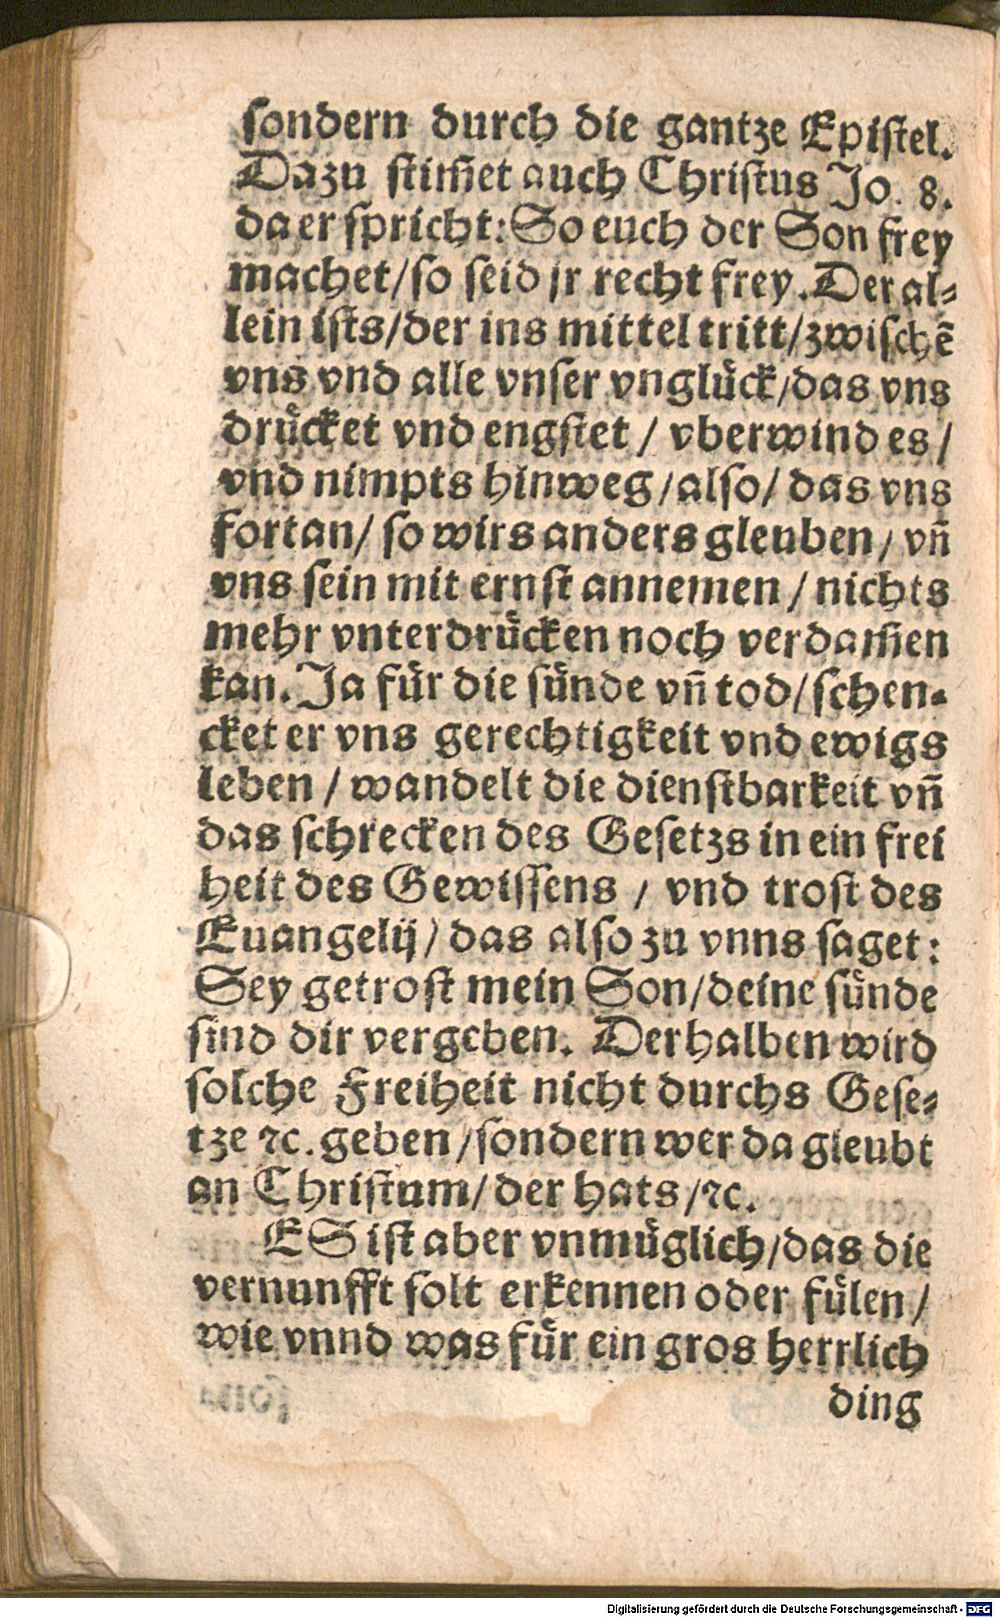 sondern durch die gantze Epistel.
Dazu stim̃et auch Christus Jo. 8.
da er spricht: So euch der Son frey
machet/so seid jr recht frey. Der al⸗
lein ists/der ins mittel tritt/zwischē
vns vnd alle vnser vnglück/das vns
drücket vnd engstet / vberwind es/
vnd nimpts hinweg/also/ das vns
fortan/ so wirs anders gleuben/ vñ
vns sein mit ernst annemen / nichts
mehr vnterdrücken noch verdam̃en
kan. Ja für die sünde vñ tod/schen⸗
cket er vns gerechtigkeit vnd ewigs
leben / wandelt die dienstbarkeit vñ
das schrecken des Gesetzs in ein frei
heit des Gewissens / vnd trost des
Euangelij/ das also zu vnns saget:
Sey getrost mein Son/deine sünde
sind dir vergeben. Derhalben wird
solche Freiheit nicht durchs Gese⸗
tze ꝛc. geben/sondern wer da gleubt
an Christum/ der hats/ꝛc.
ES ist aber vnmüglich/das die
vernunfft solt erkennen oder fülen/
wie vnnd was für ein gros herrlich
ding
Digitalisierung gefördert durch die Deutsche Forschungsgemeinschaft - DFG